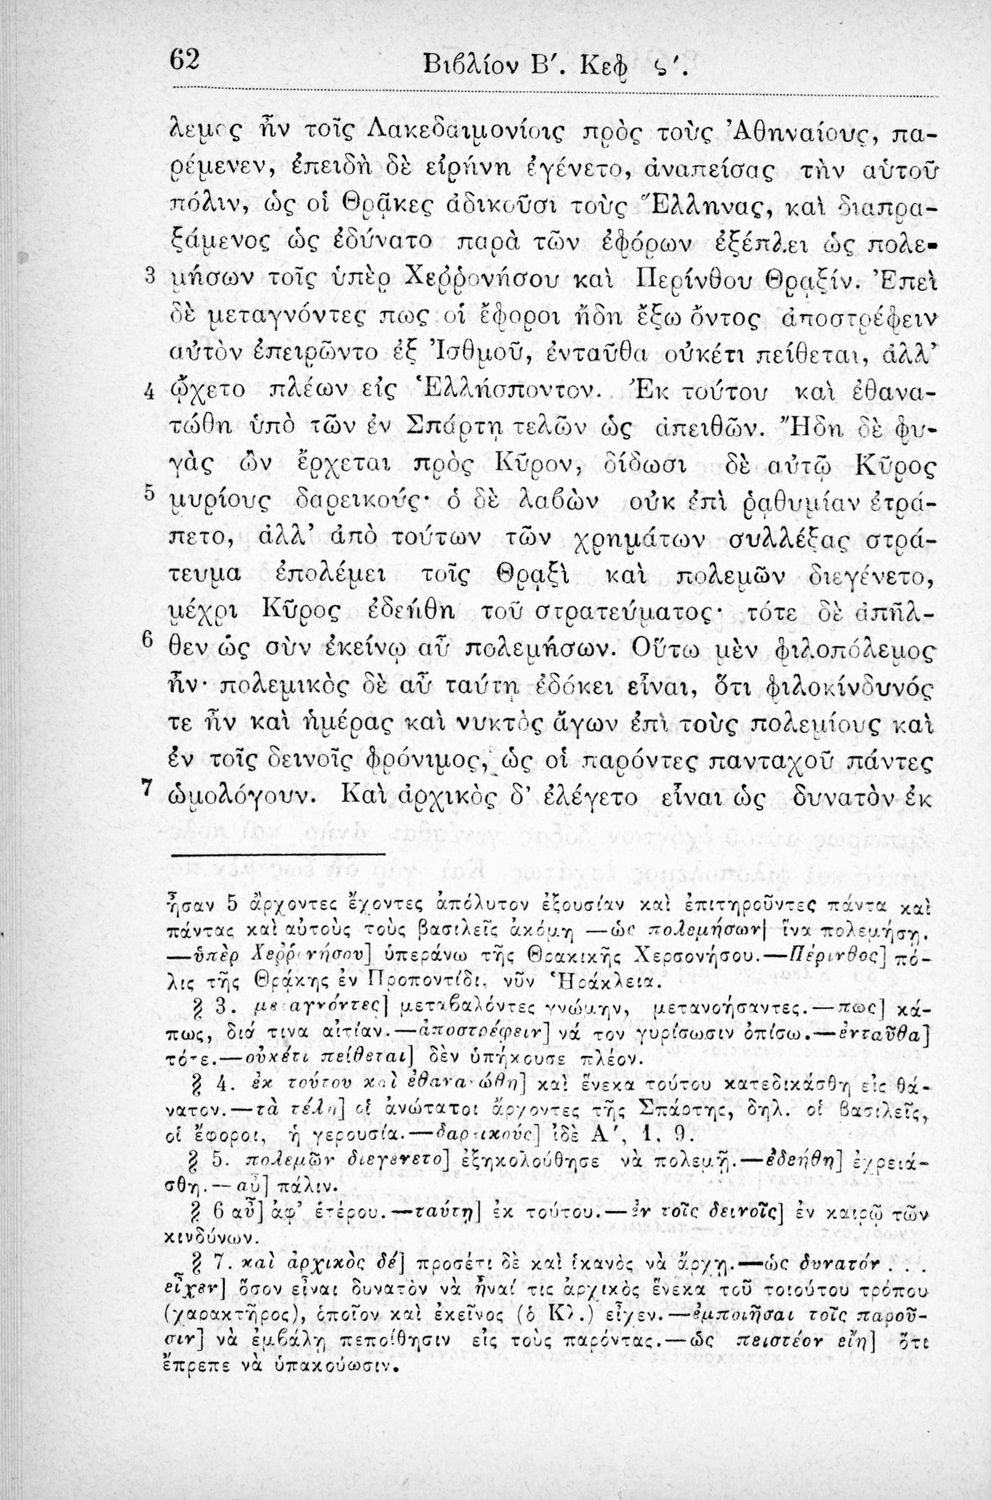 62 Βιβλίον Β΄. Κεφ ϛ΄.
λεμος ἦν τοῖς Λακεδαιμονίοις πρὸς τοὺς Ἀθηναίους, πα-
ρέμενεν, ἐπειδὴ δὲ εἰρήνη ἐγένετο, ἀναπείσας τὴν αὑτοῦ
πόλιν, ὡς οἱ Θρᾷκες ἀδικοῦσι τοὺς Ἕλληνας, καὶ διαπρα-
ξάμενος ὡς ἐδύνατο παρὰ τῶν ἐφόρων ἐξέπλει ὡς πολε-
3 μήσων τοῖς ὑπὲρ Χερρονήσου καὶ Περίνθου Θρᾳξίν. Ἐπεὶ
δὲ μεταγνόντες πως οἱ ἔφοροι ἤδη ἔξω ὄντος ἀποστρέφειν
αὐτὸν ἐπειρῶντο ἐξ Ἰσθμοῦ, ἐνταῦθα οὐκέτι πείθεται, ἀλλ’
4 ᾤχετο πλέων εἰς Ἑλλήσποντον. Ἐκ τούτου καὶ ἐθανα-
τώθη ὑπὸ τῶν ἐν Σπάρτῃ τελῶν ὡς ἀπειθῶν. Ἤδη δὲ φυ-
γὰς ὢν ἔρχεται πρὸς Κῦρον, δίδωσι δὲ αὐτῷ Κῦρος
5 μυρίους δαρεικούς· ὁ δὲ λαβὼν οὐκ ἐπὶ ῥᾳθυμίαν ἐτρά-
πετο, ἀλλ’ ἀπὸ τούτων τῶν χρημάτων συλλέξας στρά-
τευμα ἐπολέμει τοῖς Θρᾳξὶ καὶ πολεμῶν διεγένετο,
μέχρι Κῦρος ἐδεήθη τοῦ στρατεύματος· τότε δὲ ἀπῆλ-
6 θεν ὡς σὺν ἐκείνῳ αὖ πολεμήσων. Οὕτω μὲν φιλοπόλεμος
ἦν· πολεμικὸς δὲ αὖ ταύτῃ ἐδόκει εἶναι, ὅτι φιλοκίνδυνός
τε ἦν καὶ ἡμέρας καὶ νυκτὸς ἄγων ἐπὶ τοὺς πολεμίους καὶ
ἐν τοῖς δεινοῖς φρόνιμος, ὡς οἱ παρόντες πανταχοῦ πάντες
7 ὡμολόγουν. Καὶ ἀρχικὸς δ’ ἐλέγετο εἶναι ὡς δυνατὸν ἐκ
ἦσαν 5 ἄρχοντες ἔχοντες ἀπόλυτον ἐξουσίαν καὶ ἐπιτηροῦντες πάντα καὶ
πάντας καὶ αὐτοὺς τοὺς βασιλεῖς ἀκόμη —ὡς πολεμήσων] ἵνα πολεμήσῃ.
—ὑπὲρ Χερρονήσου] ὑπεράνω τῆς Θρακικῆς Χερσονήσου.—Πέρινθος] πό-
λις τῆς Θρᾴκης ἐν Προποντίδι, νῦν Ἡράκλεια.
§ 3. μεταγνόντες] μεταβαλόντες γνώμην, μετανοήσαντες.—πως] κά-
πως, διά τινα αἰτίαν.—ἀποστρέφειν] νά τον γυρίσωσιν ὀπίσω.—ἐνταῦθα]
τότε.—οὐκέτι πείθεται] δὲν ὑπήκουσε πλέον.
§ 4. ἐκ τούτου καὶ ἐθανατώθη] καὶ ἕνεκα τούτου κατεδικάσθη εἰς θά-
νατον.—τὰ τέλη] οἱ ἀνώτατοι ἄρχοντες τῆς Σπάρτης, δηλ. οἱ βασιλεῖς,
οἱ ἔφοροι, ἡ γερουσία.—δαρεικούς] ἰδὲ Α΄, 1, 9.
§ 5. πολεμῶν διεγένετο] ἐξηκολούθησε νὰ πολεμῇ.—ἐδεήθη] ἐχρειά-
σθη.—αὖ] πάλιν.
§ 6 αὖ] ἀφ’ ἑτέρου.—ταύτῃ] ἐκ τούτου.—ἐν τοῖς δεινοῖς] ἐν καιρῷ τῶν
κινδύνων.
§ 7. καὶ ἀρχικὸς δέ] προσέτι δὲ καὶ ἱκανὸς νὰ ἄρχῃ.—ὡς δυνατόν . . .
εἶχεν] ὅσον εἶναι δυνατὸν νὰ ἦναί τις ἀρχικὸς ἕνεκα τοῦ τοιούτου τρόπου
(χαρακτῆρος), ὁποῖον καὶ ἐκεῖνος (ὁ Κλ.) εἶχεν.—ἐμποιῆσαι τοῖς παροῦ-
σιν] νὰ ἐμβάλῃ πεποίθησιν εἰς τοὺς παρόντας.—ὡς πειστέον εἴη] ὅτι
ἔπρεπε νὰ ὑπακούωσιν.